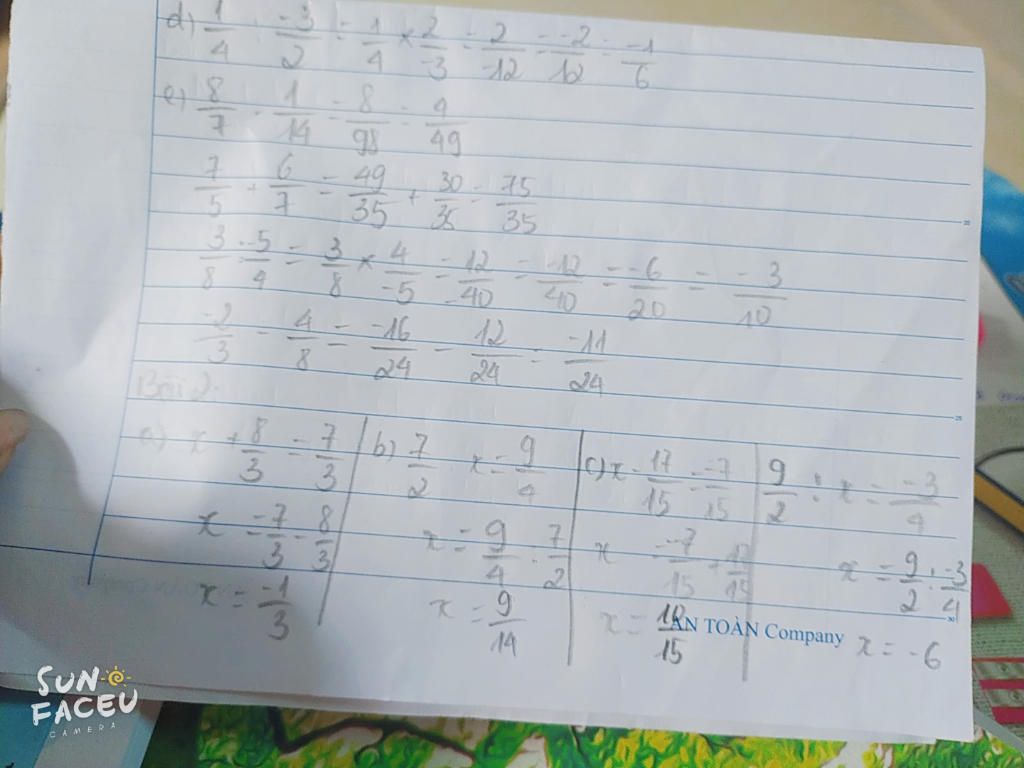 d) 1/4 : -3/2 = 1/4 × 2/-3 = 2/-12 = -2/12 = -1/6
e) 8/7 · 1/14 = 8/98 = 4/49
7/5 + 6/7 = 49/35 + 30/35 = 75/35
3/8 : -5/4 = 3/8 × 4/-5 = 12/-40 = -12/40 = -6/20 = -3/10
-2/3 - 4/8 = -16/24 - 12/24 = -11/24
Bài 2:
a) x + 8/3 = 7/3
x = -7/3 - 8/3
x = -1/3
b) 7/2 x = 9/4
x = 9/4 : 7/2
x = 9/14
c) x - 17/15 = -7/15
x = -7/15 + 17/15
x = 10/15
9/2 : x = -3/4
x = 9/2 : -3/4
x = -6
AN TOÀN Company
SUN FACEU
CAMERA